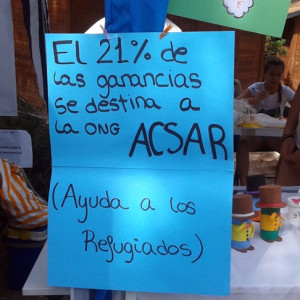 El 21% de
las ganancias
se destina a
la ONG ACSAR
(Ayuda a los
Refugiados)